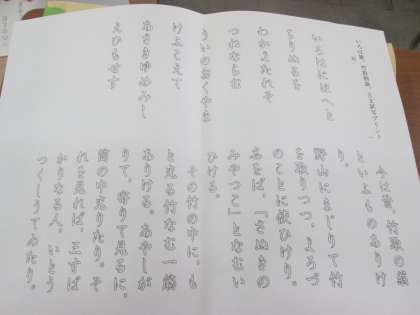 いろはにほへと
ちりぬるを
わかよたれそ
つねならむ
うゐのおくやま
けふこえて
あさきゆめみし
ゑひもせす
今は昔、竹取の翁
といふものありけ
り。
野山にまじりて竹
を取りつつ、よろづ
のことに使ひけり。
名をば、「さぬきの
みやつこ」となむいひ
ける。
その竹の中に、も
と光る竹なむ一筋
ありける。あやしが
りて、寄りて見るに、
筒の中光りたり。そ
れを見れば、三寸ば
かりなる人、いとう
つくしうてゐたり。